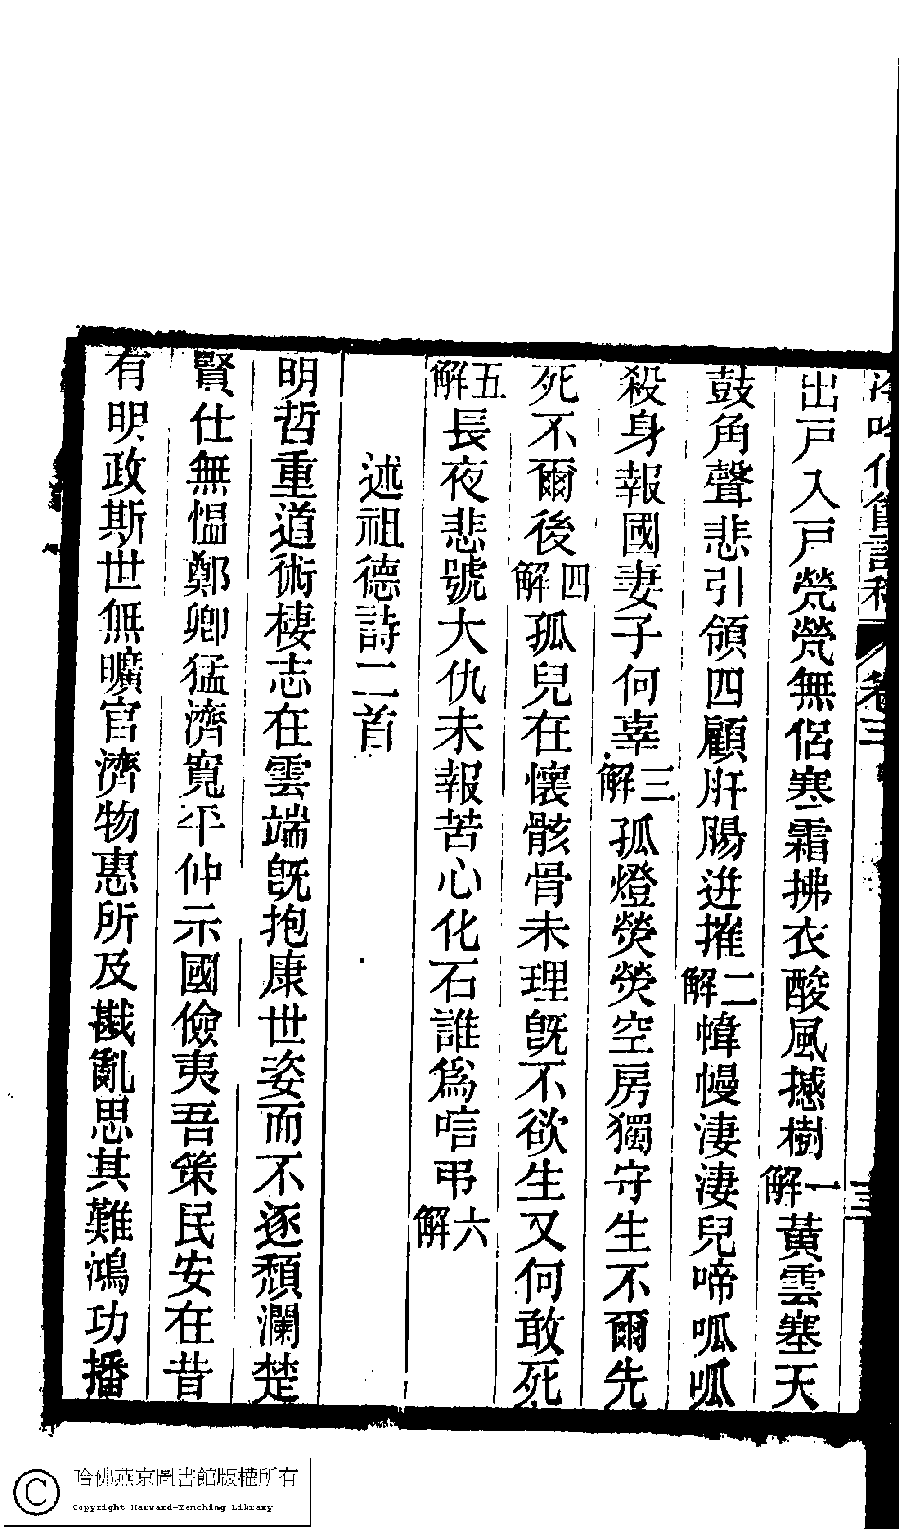 卷三
三
出戸入戸煢煢無侶寒霜拂衣酸風撼樹一解黃雲塞天
鼓角聲悲引領四顧肝腸迸摧二解幃幔淒淒兒啼呱呱
殺身報國妻子何辜三解孤燈熒熒空房獨守生不爾先
死不爾後四解孤兒在懷骸骨未理旣不欲生又何敢死
五解長夜悲號大仇未報苦心化石誰爲唁弔六解
述祖德詩二首
明哲重道術棲志在雲端旣抱康世姿而不逐頹瀾楚
賢仕無慍鄭卿猛濟寬平仲示國儉夷吾策民安在昔
有明政斯世無曠官濟物惠所及戡亂思其難鴻功播
哈佛燕京圖書館版權所有
Copyright Harvard-Yenching Library